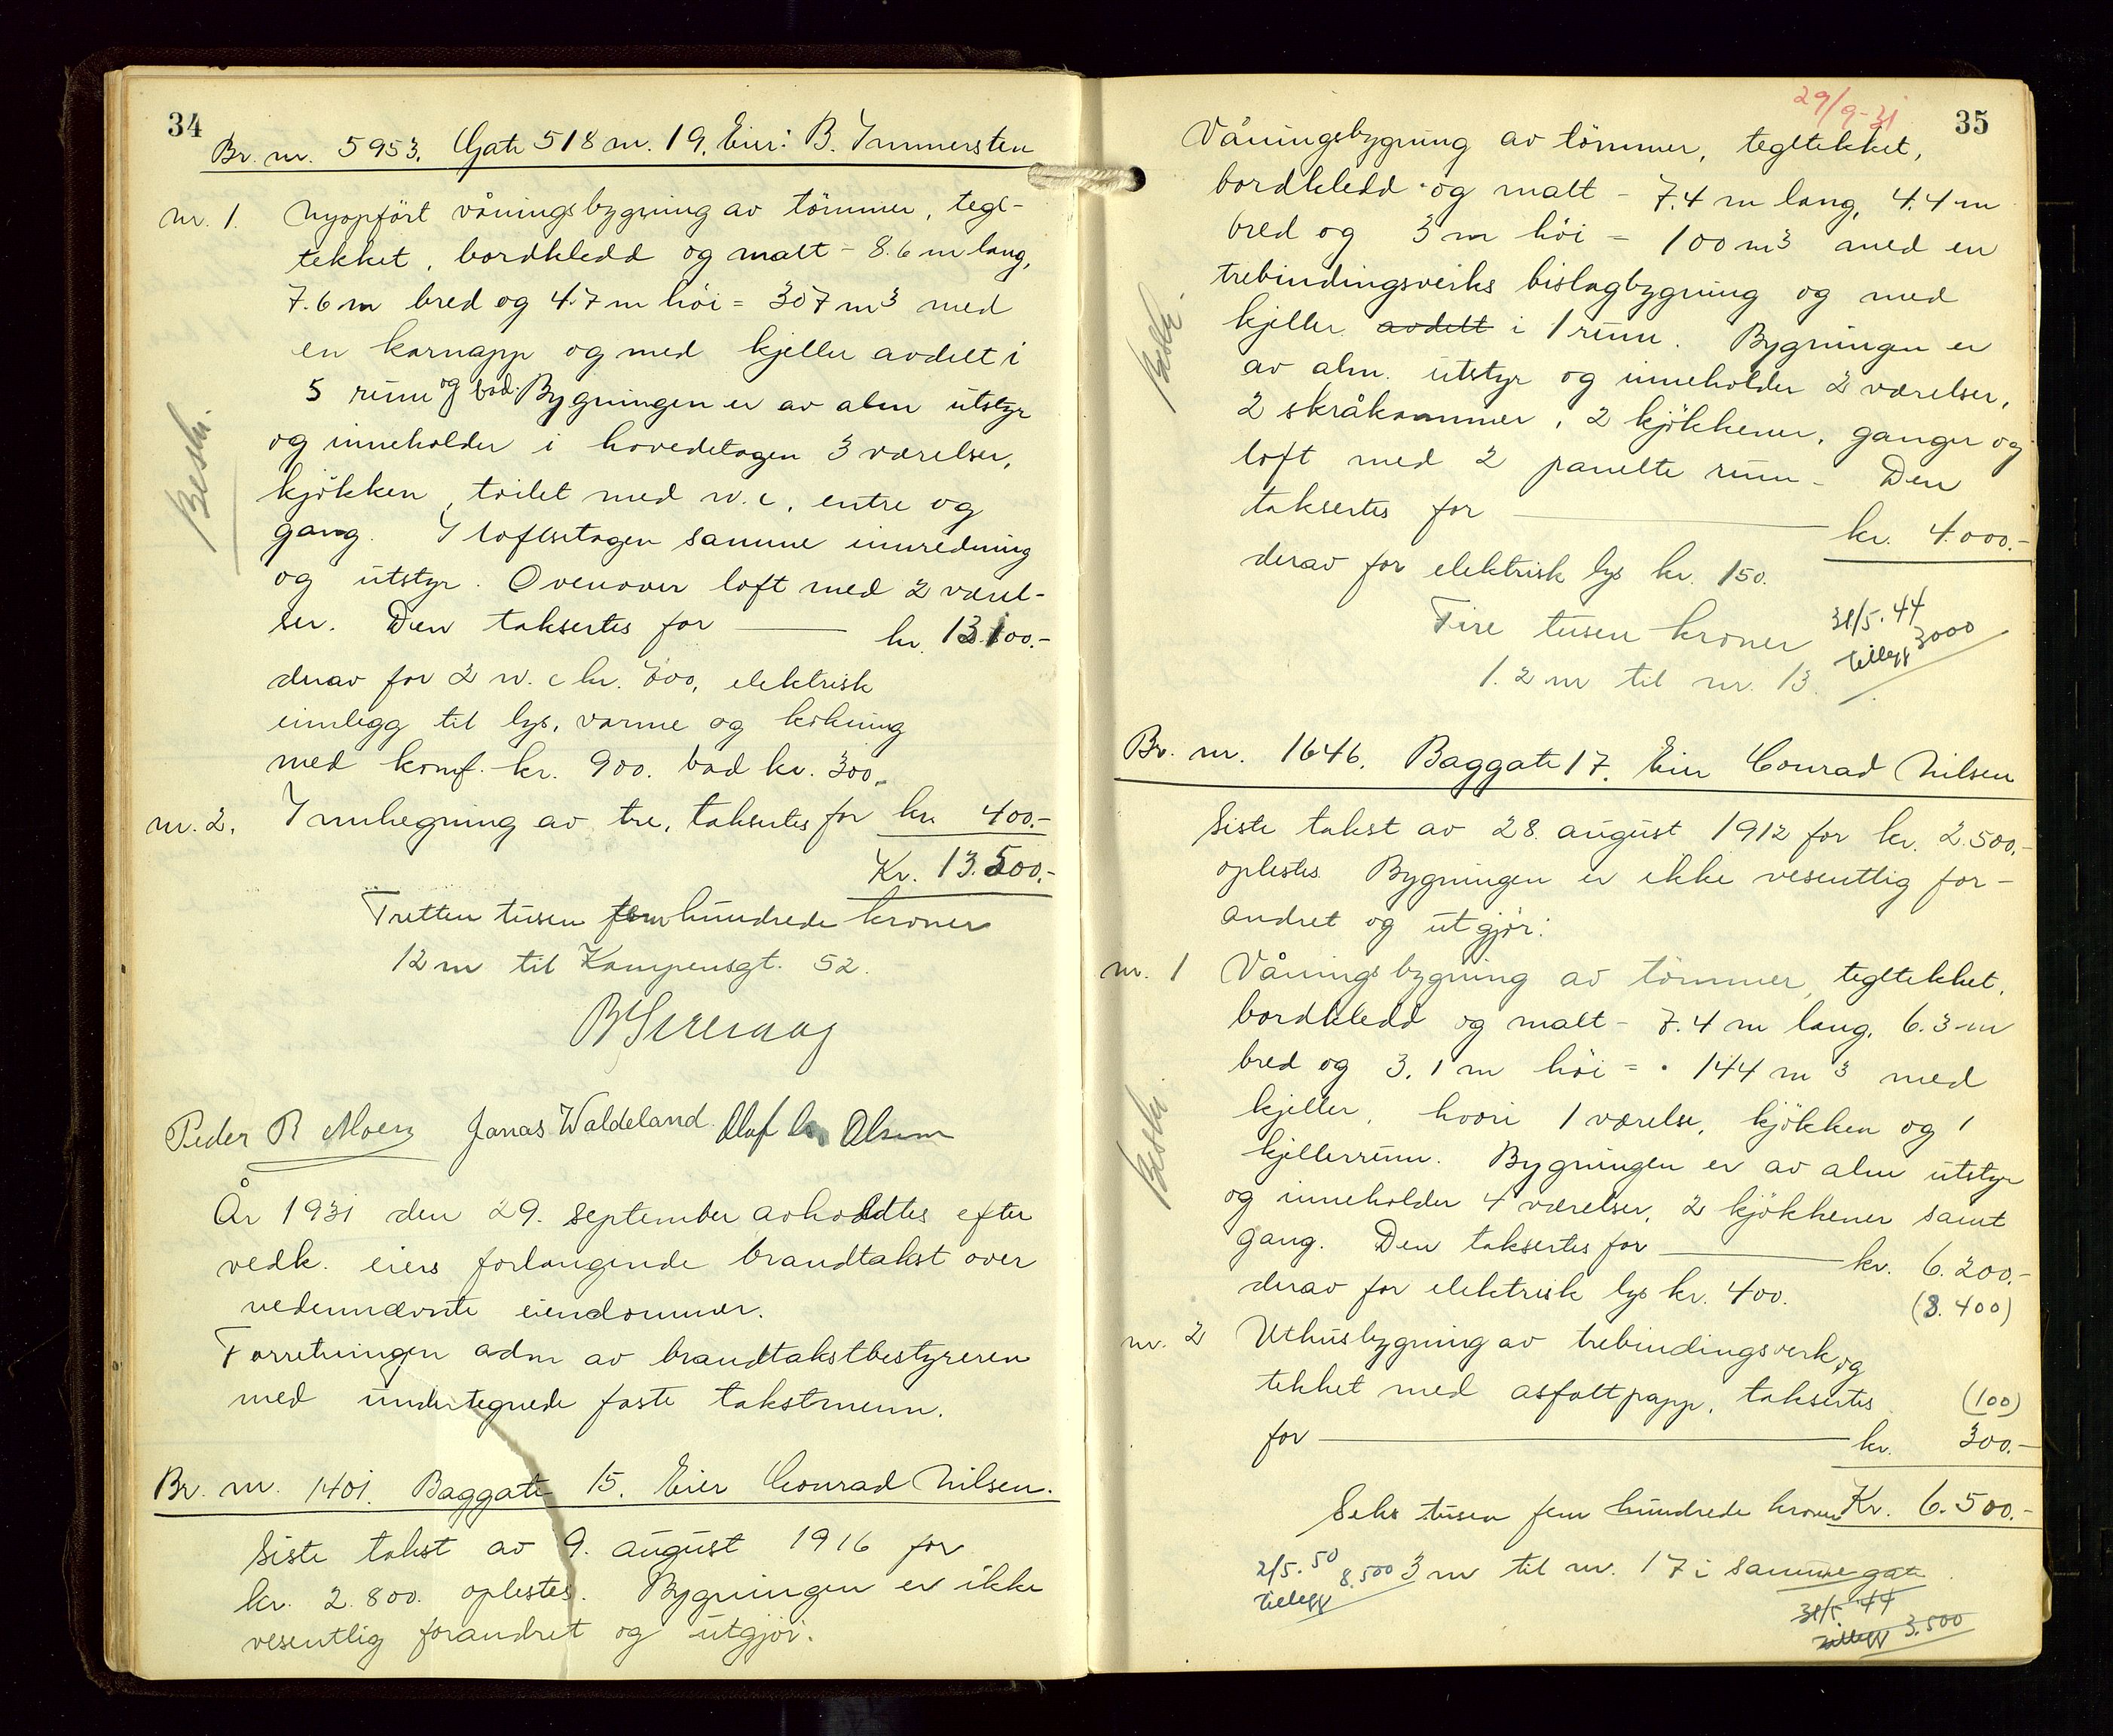 34
Br. nr. 5953. Gate 518 nr. 19. Eier: B. Immersten
nr. 1. Nyopført våningsbygning av tömmer, tegl-
tekket, bordkledd og malt - 8.6 m lang,
7.6 m bred og 4.7 m höi = 307 m3 med
en karnapp og med kjeller avdelt i
5 rum og bad. Bygningen er av alm utstyr
og inneholder i hovedetagen 3 værelser,
kjökken, toilet med w.c, entre og
gang. I loftsetagen samme innredning
og utstyr. Ovenover loft med 2 værel-
ser. Den taksertes for kr. 13.100.-
derav for 2 w.c kr. 700, elektrisk
innlegg til lys, varme og kokning
med komf. kr. 900. bad kr. 300.-
nr. 2. Innhegning av tre, taksertes for kr. 400.-
Kr. 13.500.-
Beskr.
Tretten tusen fem hundrede kroner
12 m til Kampensgt. 52.
Peder R Moen Jonas Waldeland. Olaf Olsen
År 1931 den 29. september avholdtes efter
vedk. eiers forlangende brandtakst over
nedennævnte eiendommer.
Forretningen adm av brandtakstbestyreren
med undertegnede faste takstmenn.
Br. nr. 1401. Baggate 15. Eier Conrad Nilsen.
Siste takst av 9. august 1916 for
kr. 2.800. oplestes. Bygningen er ikke
vesentlig forandret og utgjör.
29/9-31
35
Våningsbygning av tömmer, tegltekket,
bordkledd og malt - 7.4 m lang, 4.4 m
bred og 3 m höi = 100 m3 med en
trebindingsverks bislagbygning og med
kjeller avdelt i 1 rum. Bygningen er
av alm. utstyr og inneholder 2 værelser,
2 skråkammer, 2 kjökkener, ganger og
loft med 2 panelte rum - Den
taksertes for kr. 4.000.-
derav for elektrisk lys kr. 150.
Beskr.
Fire tusen kroner
31/5. 44
tillegg 3000
1.2 m til nr. 13.
Br. nr. 1646. Baggate 17. Eier Conrad Nilsen
Siste takst av 28. august 1912 for kr. 2.500.-
oplestes. Bygningen er ikke vesentlig for-
andret og utgjör:
nr. 1 Våningsbygning av tömmer, tegltekket,
bordkledd og malt - 7.4 m lang, 6.3 m
bred og 3.1 m höi = 144 m3 med
kjeller, hvori 1 værelse, kjökken og 1
kjellerrum. Bygningen er av alm utstyr
og inneholder 4 værelser, 2 kjökkener samt
gang. Den taksertes for kr. 6.200.-
derav for elektrisk lys kr. 400. (8.400)
Beskr.
nr. 2 Uthusbygning av trebindingsverk og
tekket med asfaltpapp, taksertes (100)
for kr. 300.-
Seks tusen fem hundrede kroner Kr. 6.500.-
2/5. 50 8.500 3 m til nr. 17 i samme gate
tillegg
31/5 44
tillegg 3.500